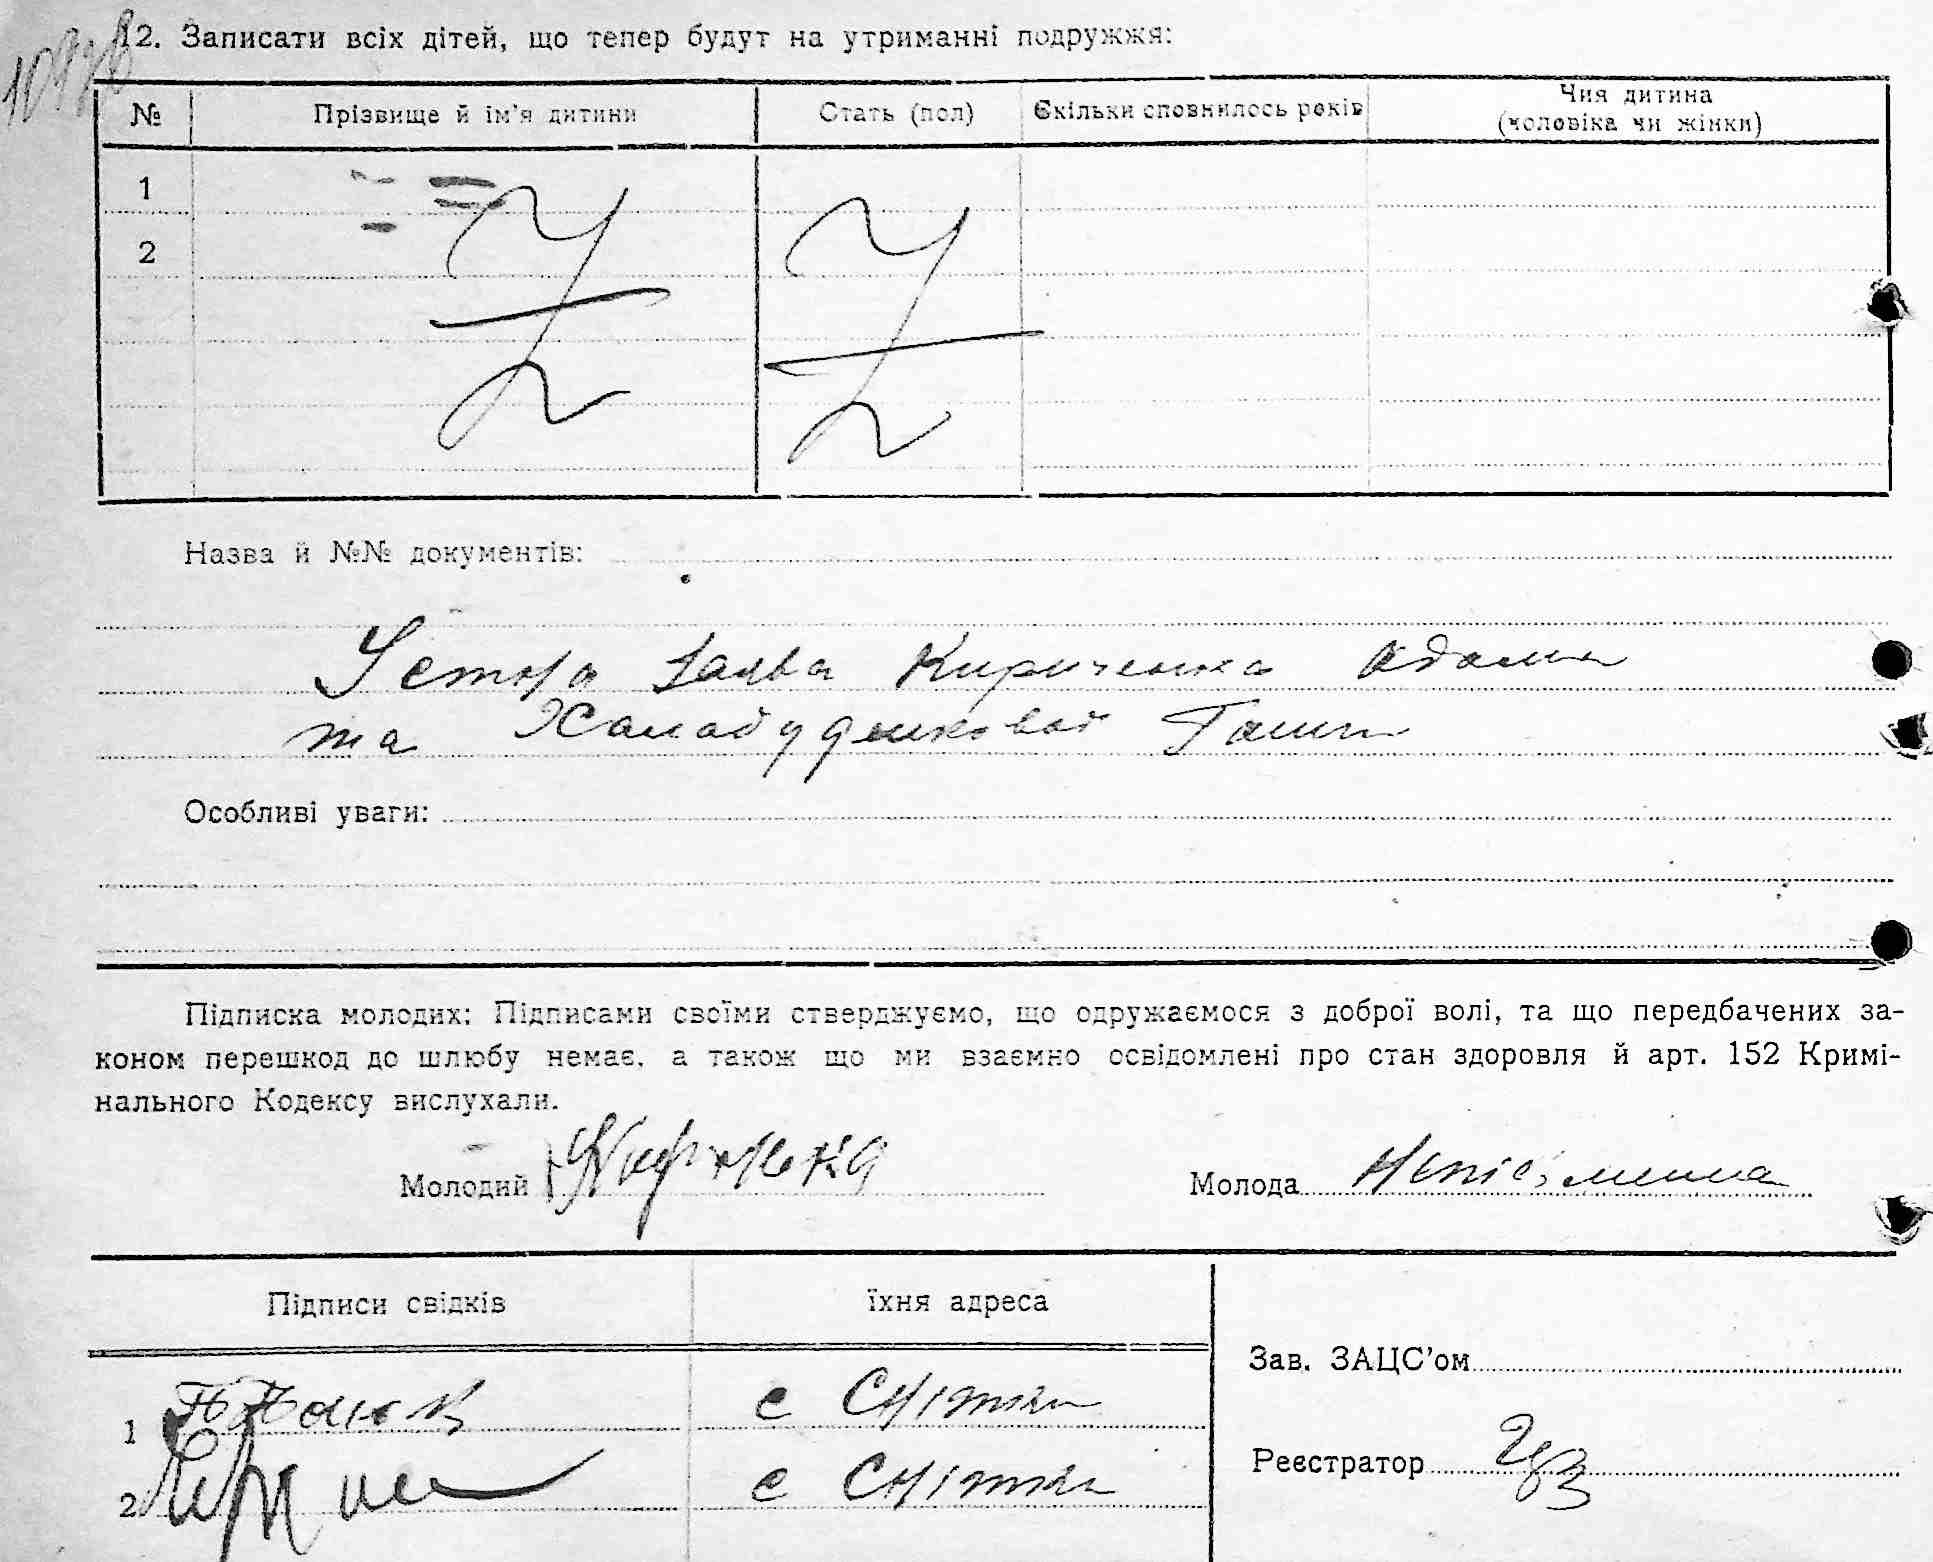 12. Записати всіх дітей, що тепер будут на утриманні подружжя:
№ Прізвище й ім'я дитини Стать (пол) Скільки сповнилось років Чия дитина
(чоловіка чи жінки)
1
2
Назва й №№ документів:
Устна заява Кириченка Адама
та Халабуденкової Ганни
Особливі уваги:
Підписка молодих: Підписами своїми стверджуємо, що одружаємося з доброї волі, та що передбачених за-
коном перешкод до шлюбу немає, а також що ми взаємно освідомлені про стан здоровля й арт. 152 Кримі-
нального Кодексу вислухали.
Молодий Молода Неписьмена
Підписи свідків їхня адреса
Зав. ЗАЦС'ом
1 с Снітки
Реєстратор
2 с Снітки